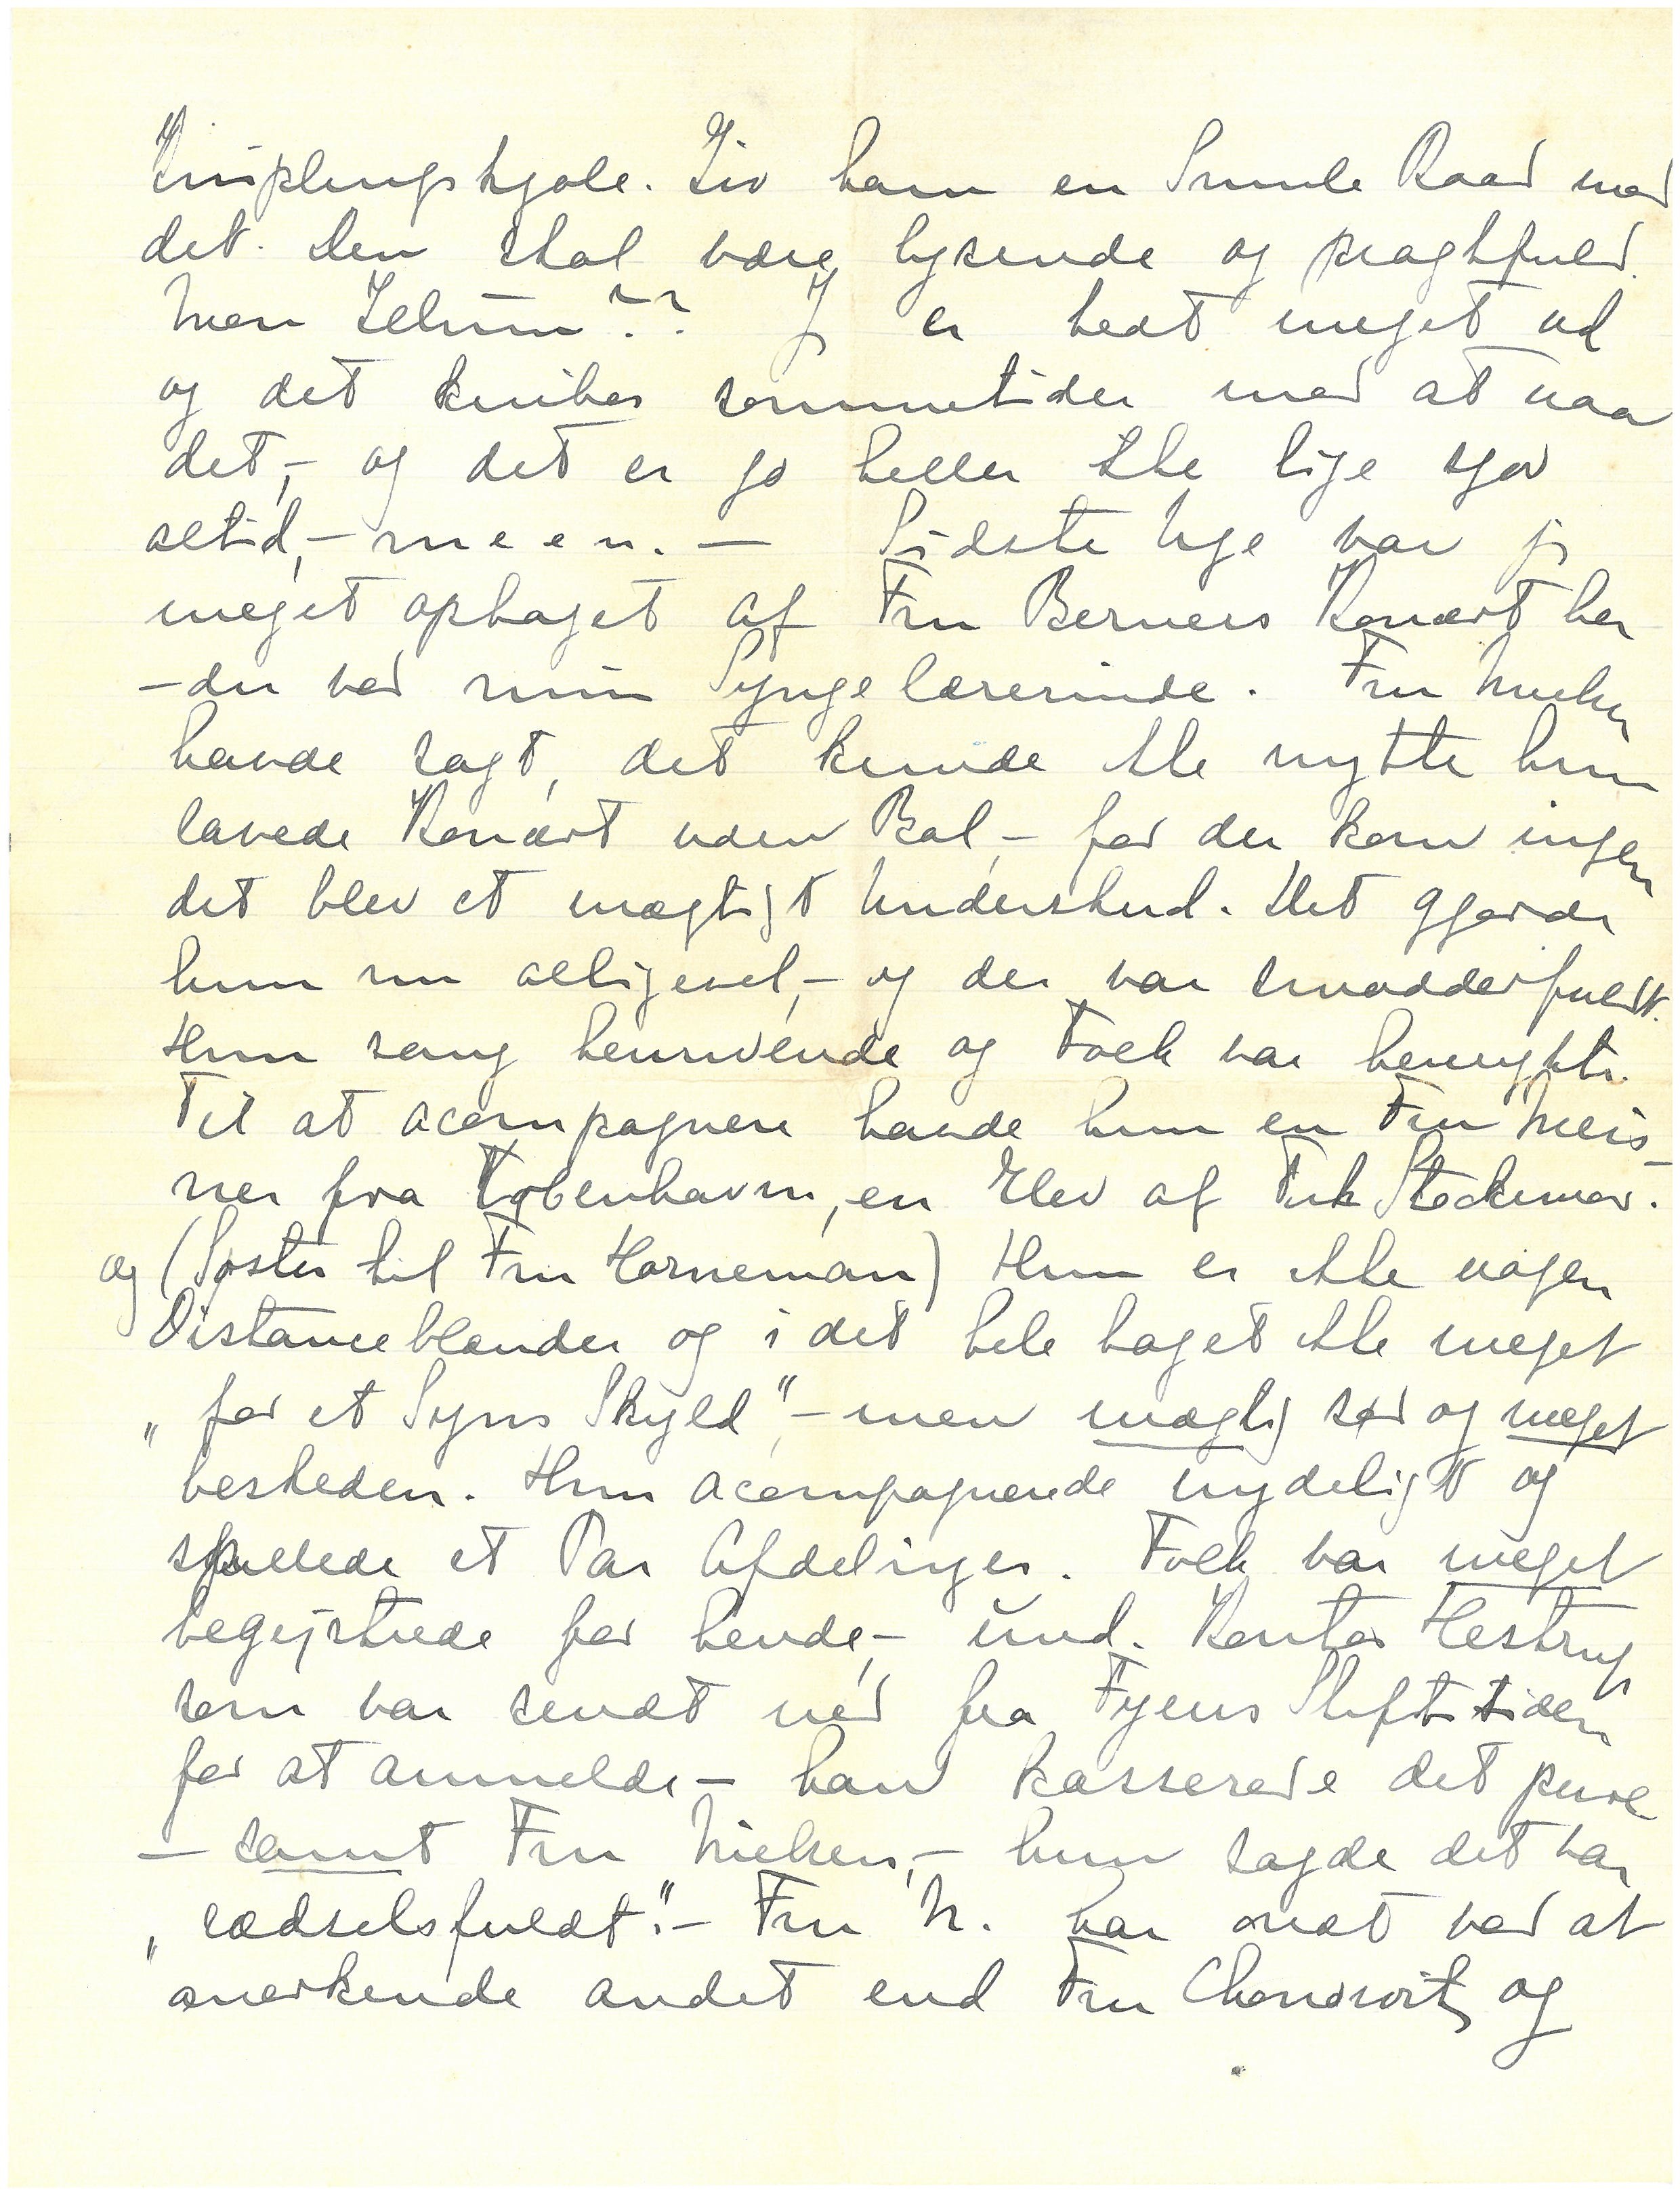 Kniplingskjole. Giv ham en Smule Raad med
det. Den skal være lysende og pragtfuld.
Men Jehun?? Jeg er bedt meget ud
og det kniber sommetider med at naa
det, - og det er jo heller ikke lige sjov
altid, - meen. - Sidste Uge var jeg
meget optaget af Fru Berners Konsert her
- du ved min Syngelærerinde. Fru Nielsen
havde sagt, det kunde ikke nytte hun
lavede Konsert uden Bal, - for der kom ingen
det blev et mægtigt Underskud. Det gjorde
hun nu alligevel, - og der var smadderfuldt.
Hun sang henrivende og Folk var henrykte.
Til at acompagnere havde hun en Fru Meis-
ner fra København, en Elev af Frk Stockmar.
og (Søster til Fru Horneman) Hun er ikke nogen
Distanceblænder og i det hele taget ikke meget
"for et Syns Skyld" - men mægtig sød og meget
beskeden. Hun acompagnerede nydeligt og
spillede et Par Afdelinger. Folk var meget
begejstrede for hende, - und. Kantor Hestrup
som var sendt ned fra Fyens Stiftstiden
for at anmelde - han kasserede det pure
- samt Fru Nielsen, - hun sagde det var
"rædselsfuldt". - Fru N. har ondt ved at
anerkende andet end Fru og